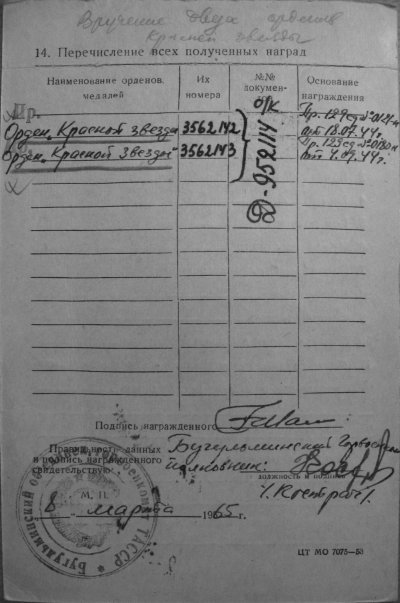 Вручение двух орденов
Красной звезды
14. Перечисление всех полученных наград
Наименование орденов, медалей
Их номера
№№ докумен-
Основание награждения
о/к
Пр.
Орден „Красной звезды
3562142
Пр. 129сд
от 18.07.44г.
Орден „Красной звезды"
3562143
Пр. 129сд
от 4.09.44г.
952114
Подпись награжденного
Правильность данных
и подпись награжденного
свидетельствую:
Бугульминский Горвоен
полковник:
должность и подпись
М. П.
8 марта 1965 г.
Бугульминский ТАССР
ЦТ МО 7075—53